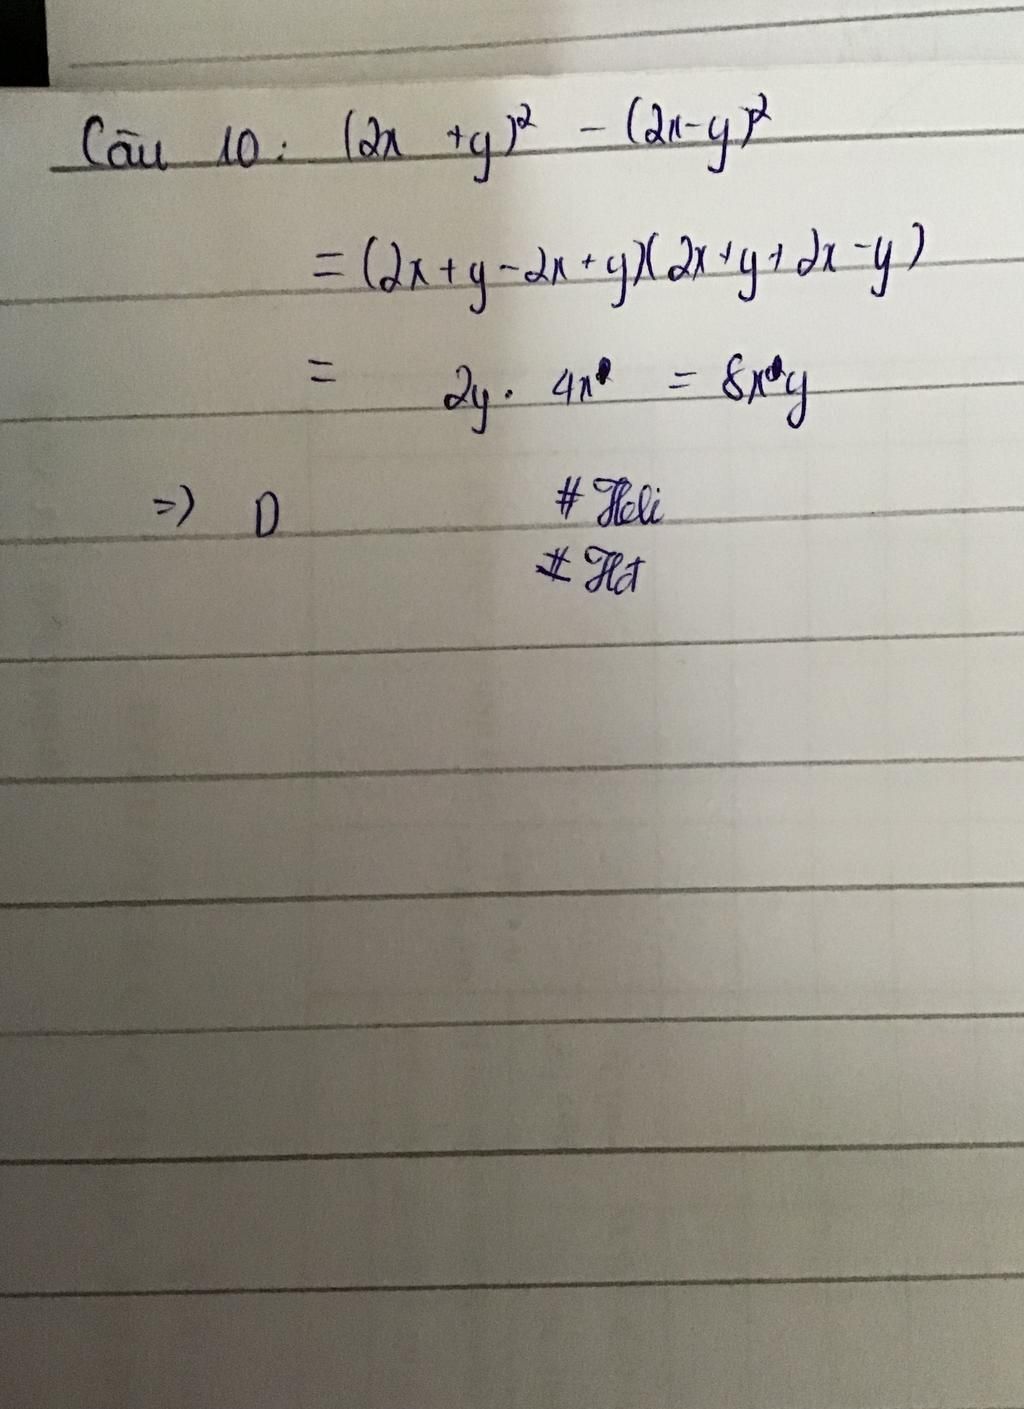 Câu 10: (2x +y)² - (2x-y)²
= (2x+y-2x+y)(2x+y+2x-y)
= 2y. 4x = 8xy
=> D # Heli
# Hd